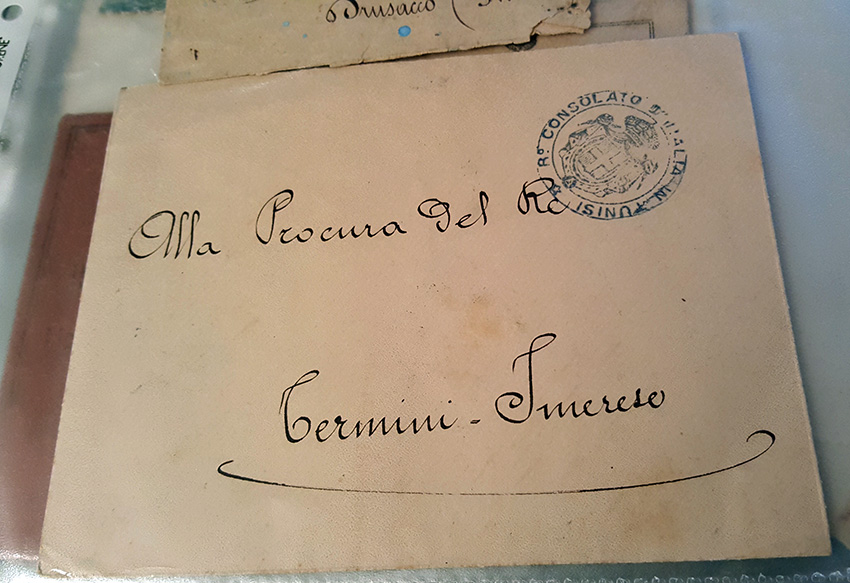 Brusacco
R.º CONSOLATO D'ITALIA IN TUNISI
Alla Procura Del Re
Termini - Imerese